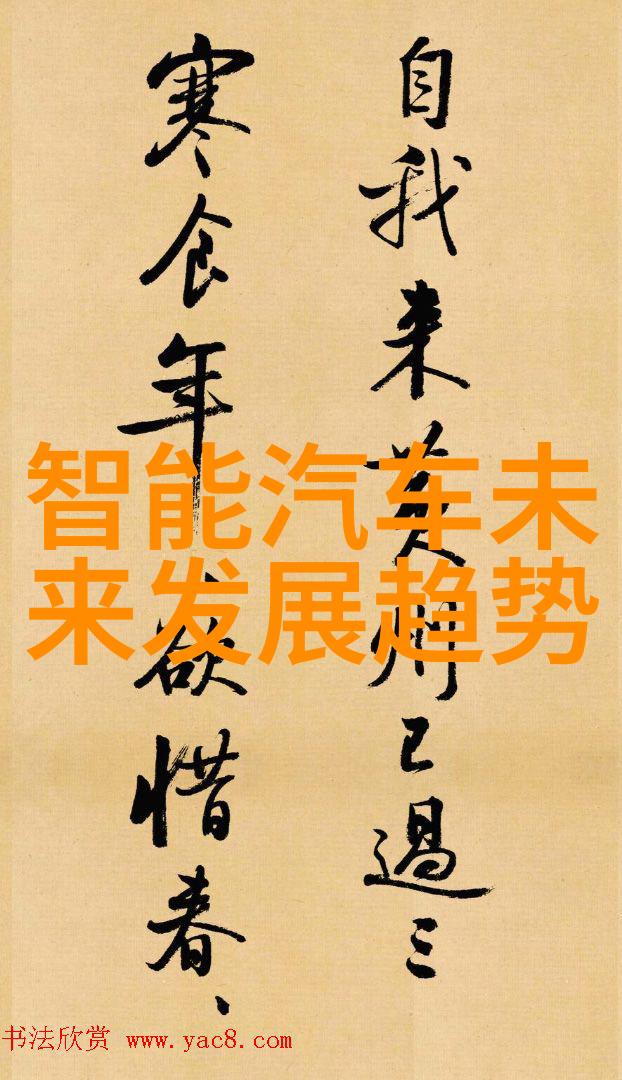 自我来黄州已過三
寒食年、欲惜春、
智能汽车未
来发展趋势
书法欣赏 www.yac8.com